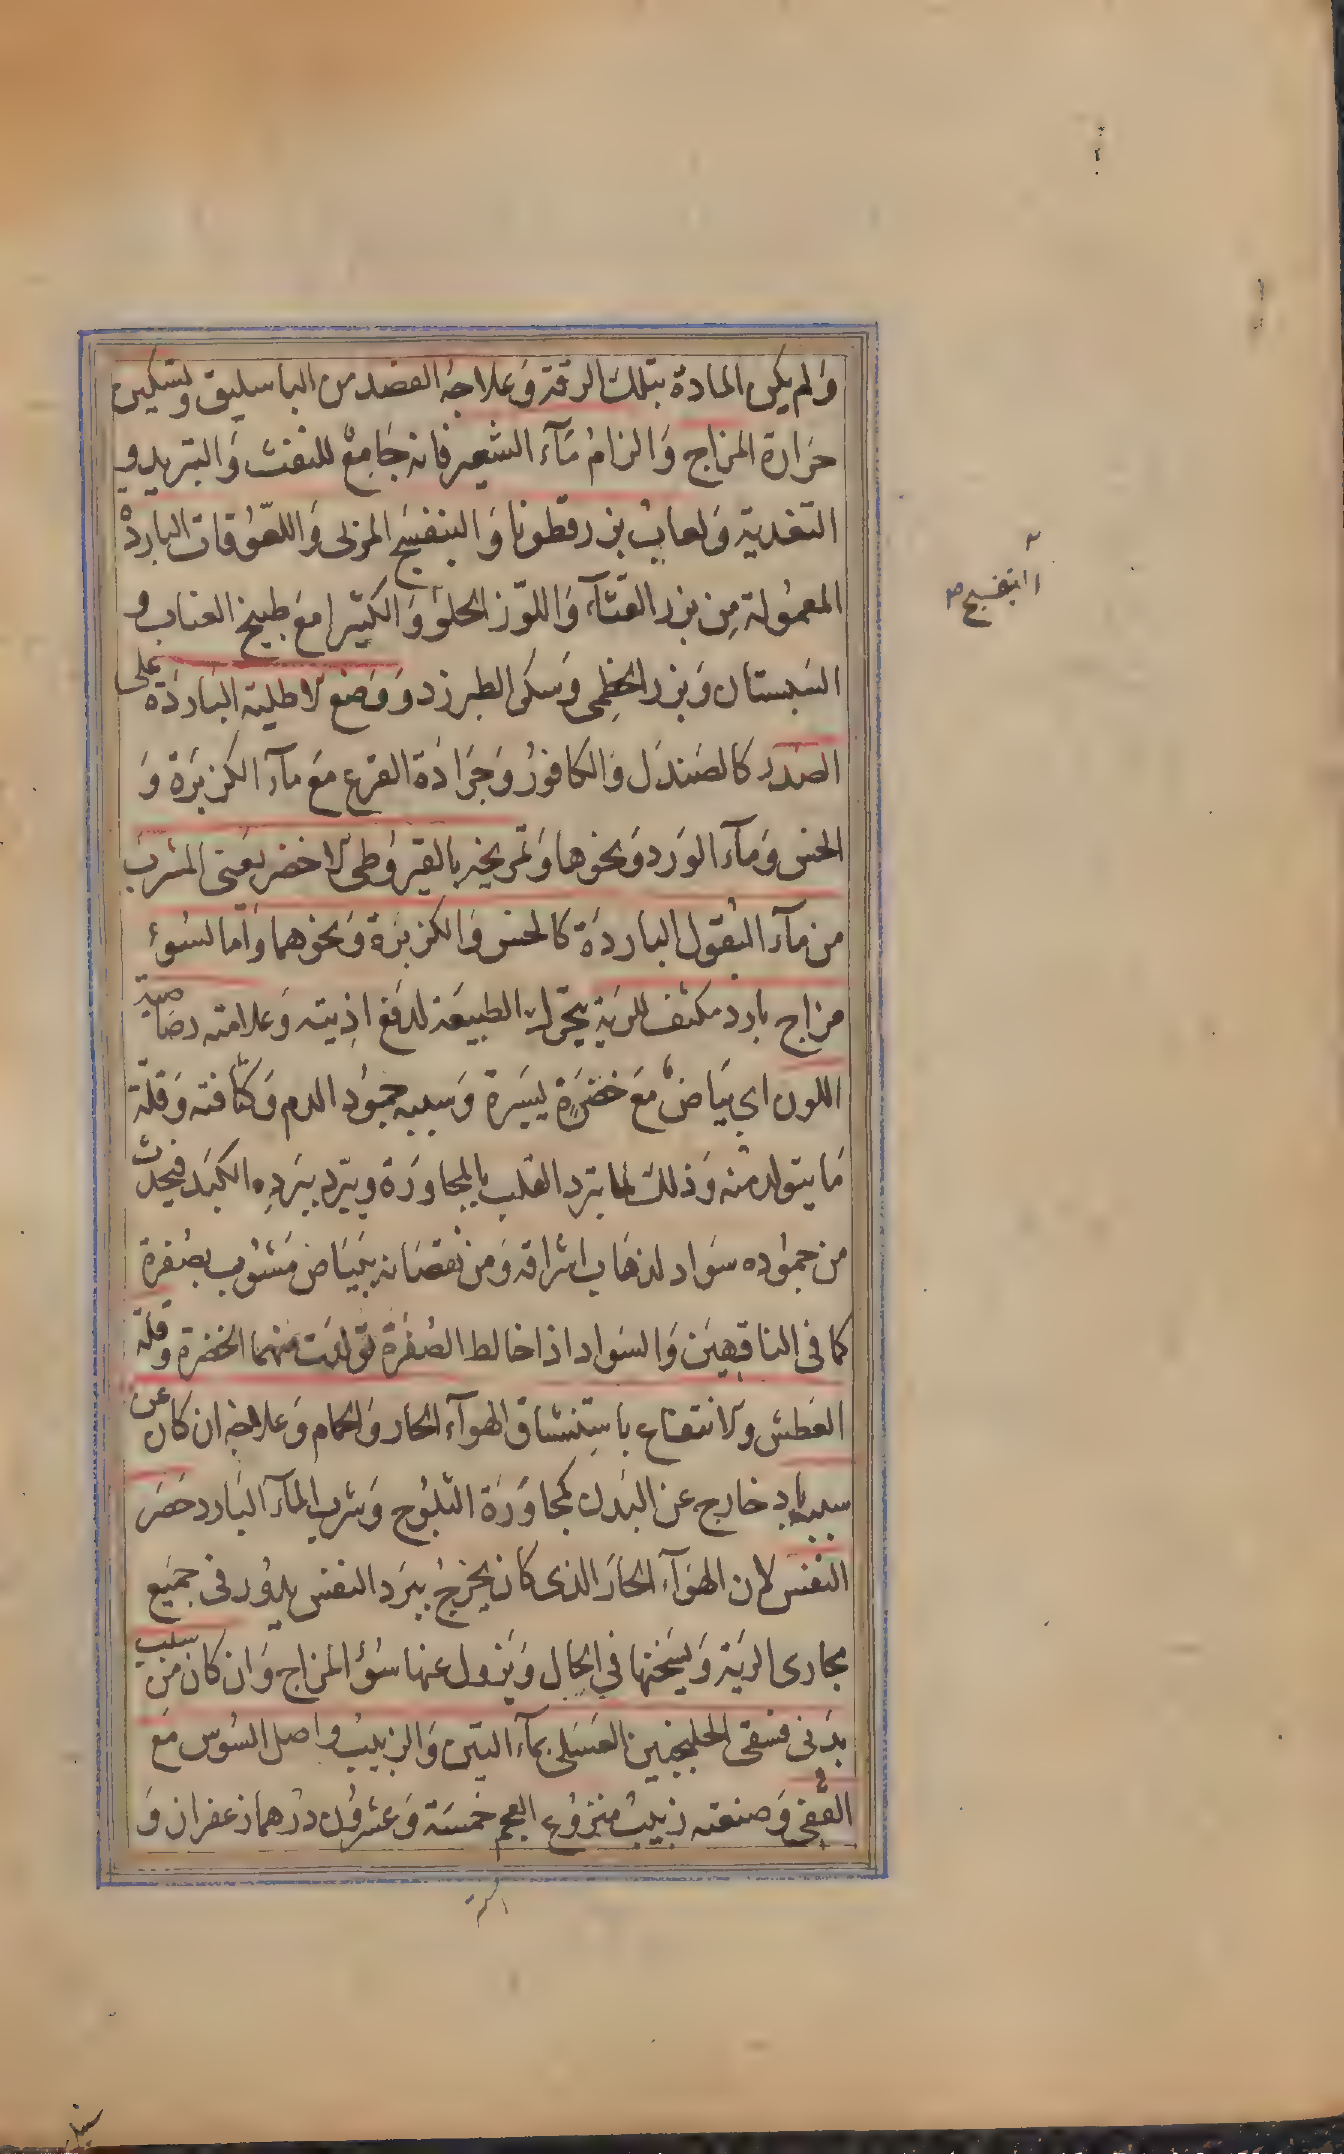 وَلم يكن المادة بتلك الرقة وَعلاجهُ الفصد من الباسليق وتسكين
حَرَارة المزاج وَالزامُ مَآء الشعير فانه جَامِعْ للنفث وَالتبريد و
التغدية وَلعابُ بزرقطونا وَالبنفسج المربى وَاللعُوقات الباردة
المعمُولة مِن بزر القثآء وَاللوّز الحلو وَالكثيرا مَع طبيخ العناب و
السَبستان وَبزر الخطِمى وَسكر الطبرزد وَوَضع الاطلية البَاردَة على
الصَدر كالصَندَل وَالكافورُ وَجَرادَة القرع مَع مآء الكزبَرَة وَ
الخس وَمآء الوَرد وَنحوها وَتمريخه بالقيروطى الاخضر يعَنى المشرب
من مآء البُقول الباردَة كالخس وَالكزبَرَة وَنحوهما وَاما لسُوء
مزاج بارد مكثف للرية يحّرك الطبيعَة لدفع اذِيته وَعلامته رصَاصية
اللون اى بَيَاضٌ مَع خضَرَة يسَيرة وَسببه جمُود الدم وَكثافته وَقلّة
مَا يتولد منه وَذلكَ لما يبَرد القلب بالمجاوَرَة ويبَرد ببَردِه الكبَد فيحَدث
من جموُده سَواد لذهَاب اشراقه وَمن نقصَانه بَيَاض مَشوُب بصُفرة
كما فى الناقهِيَن وَالسَواد اذا خالط الصُفرَة تولدَت منهما الخضرة وقلة
العَطش والانتفاع باستنشاق الهوآء الحار وَالحمام وَعلاجه ان كان عن
سبب باد خارج عن البَدن كمجاوَرَة الثلوُج وَشرب المآء البَارد حَصَر
النفسَ لان الهَوآء الحارَ الذى كان يخرجُ ببَرد النفس يدوُر فى جميَع
مجارى الريَة وَيسَخنها فى الحال وَيَزول عنها سُوء المزاج وَان كان من سبب
بدَنى فسَقى الجلنجبين العَسَلى بمآء التين وَالزبيبُ واصل السُوس مَع
القفى وَصنعته زبيبُ منزوُع العجم خمسَة وَعشروُن درهما زعفران وَ
البنفسج